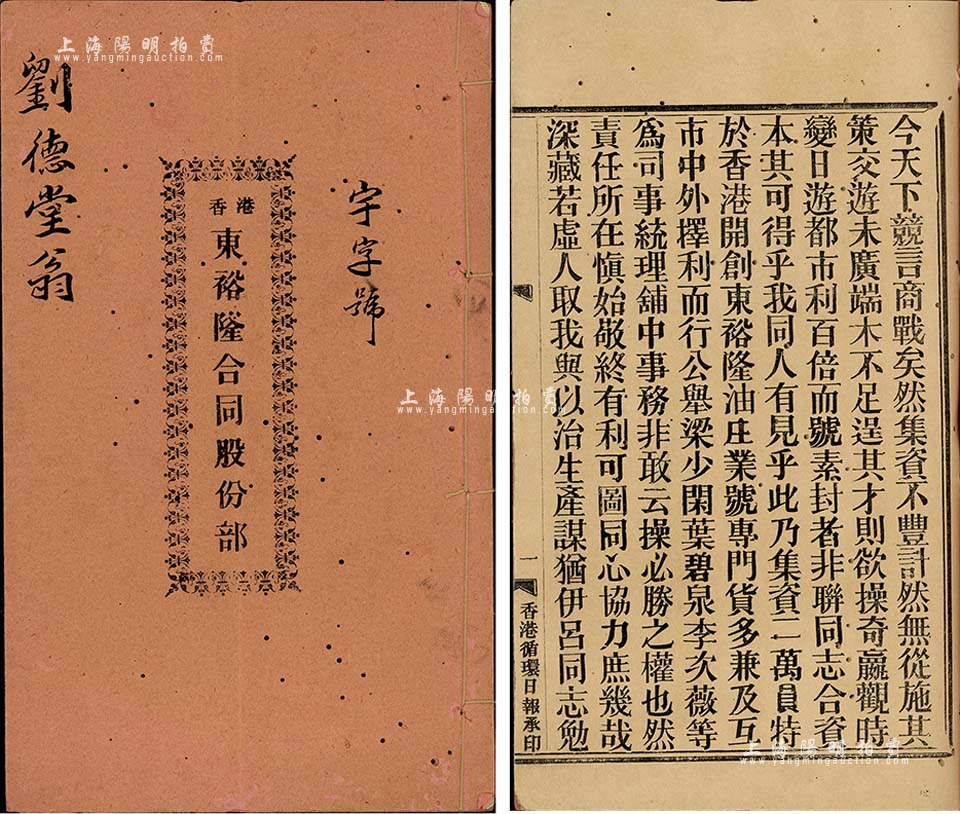 上海陽明拍賣
www.yangmingauction.com
宇字號
香港
東裕隆合同股份部
劉德堂翁
上海陽明拍賣
www.yangmingauction.com
今天下競言商戰矣然集資不豐計然無從施其
策交遊未廣端木不足逞其才則欲操奇贏觀時
變日遊都市利百倍而號素封者非聯同志合資
本其可得乎我同人有見乎此乃集資二萬員特
於香港開創東裕隆油庄業號專門貨多兼及互
市中外擇利而行公舉梁少閑葉碧泉李次薇等
為司事統理舖中事務非敢云操必勝之權也然
責任所在慎始敬終有利可圖同心協力庶幾哉
深藏若虛人取我與以治生產謀猶伊呂同志勉
一
香港循環日報承印
上海陽明拍賣
www.yangmingauction.com